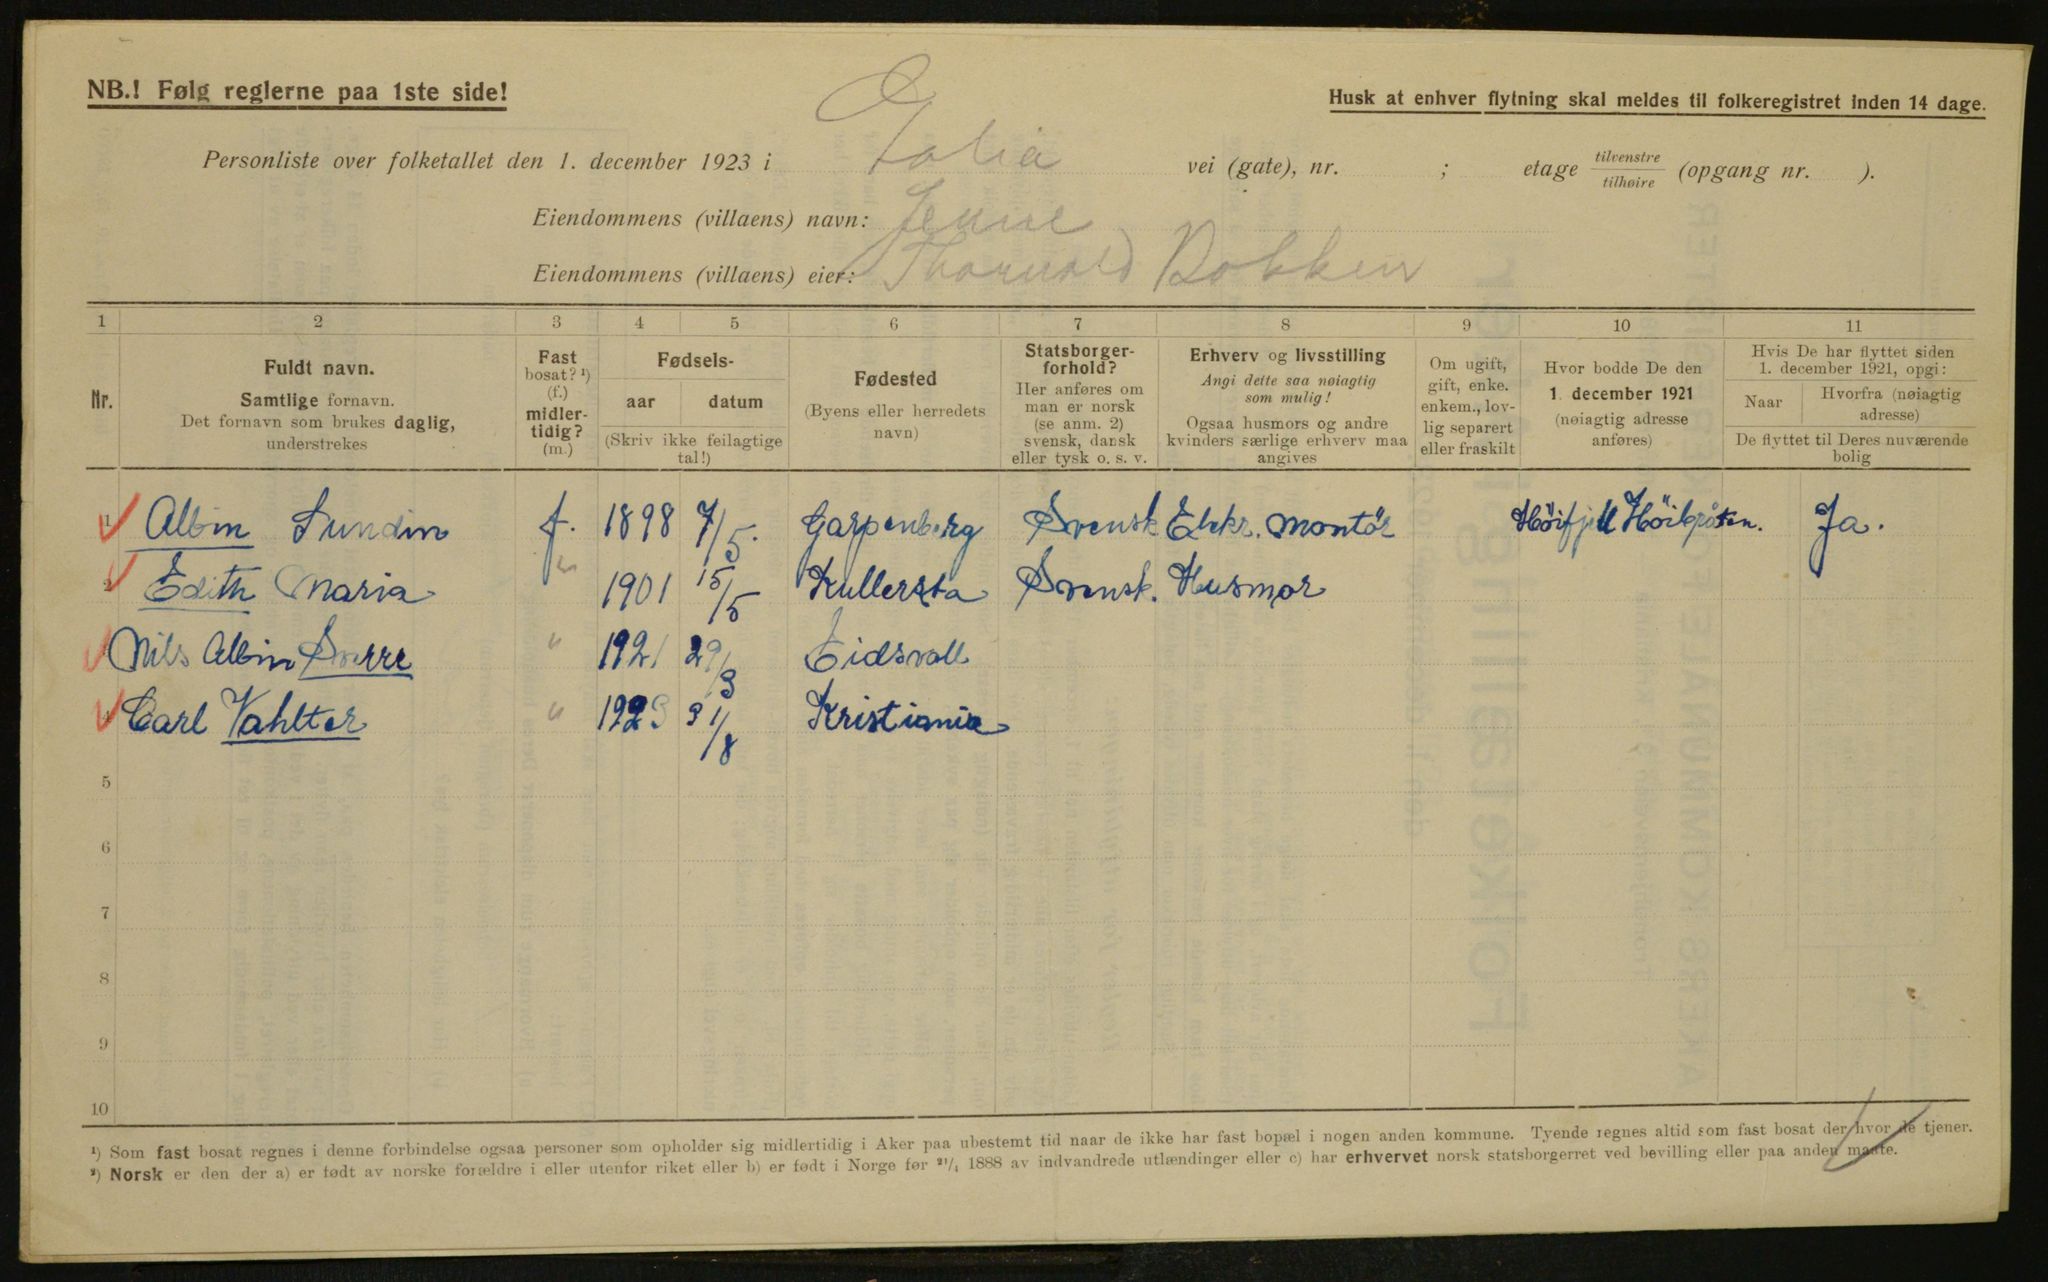 NB.! Følg reglerne paa 1ste side!
Husk at enhver flytning skal meldes til folkeregistret inden 14 dage.
Personliste over folketallet den 1. december 1923 i vei (gate), nr. ; etage tilvenstre/tilhøire (opgang nr. ).
Eiendommens (villaens) navn:
Eiendommens (villaens) eier: Thorvald Bakken
1 2 3 4 5 6 7 8 9 10 11
Nr.
Fuldt navn.
Samtlige fornavn.
Det fornavn som brukes daglig,
understrekes
Fast
bosat? ¹)
(f.)
midler-
tidig?
(m.)
Fødsels-
aar datum
(Skriv ikke feilagtige
tal!)
Fødested
(Byens eller herredets
navn)
Statsborger-
forhold?
Her anføres om
man er norsk
(se anm. 2)
svensk, dansk
eller tysk o. s. v.
Erhverv og livsstilling
Angi dette saa nøiagtig
som mulig!
Ogsaa husmors og andre
kvinders særlige erhverv maa
angives
Om ugift,
gift, enke.
enkem., lov-
lig separert
eller fraskilt
Hvor bodde De den
1. december 1921
(nøiagtig adresse
anføres)
Hvis De har flyttet siden
1. december 1921, opgi:
Naar
Hvorfra (nøiagtig
adresse)
De flyttet til Deres nuværende
bolig
1 Albin Sundin f. 1898 7/5. Garpenberg Svensk Elekr. Montör Höifjell Ja.
2 Edith Maria " 1901 15/5 Kullersta Svensk. Husmor
Nils Albin Sverre " 1921 29/3 Eidsvoll
4 Carl Vahlter " 1923 31/8 Kristiania
5
6
7
8
9
10
¹) Som fast bosat regnes i denne forbindelse ogsaa personer som opholder sig midlertidig i Aker paa ubestemt tid naar de ikke har fast bopæl i nogen anden kommune. Tyende regnes altid som fast bosat der hvor de tjener.
²) Norsk er den der a) er født av norske forældre i eller utenfor riket eller b) er født i Norge før ²¹/₄ 1888 av indvandrede utlændinger eller c) har erhvervet norsk statsborgerret ved bevilling eller paa anden maate.